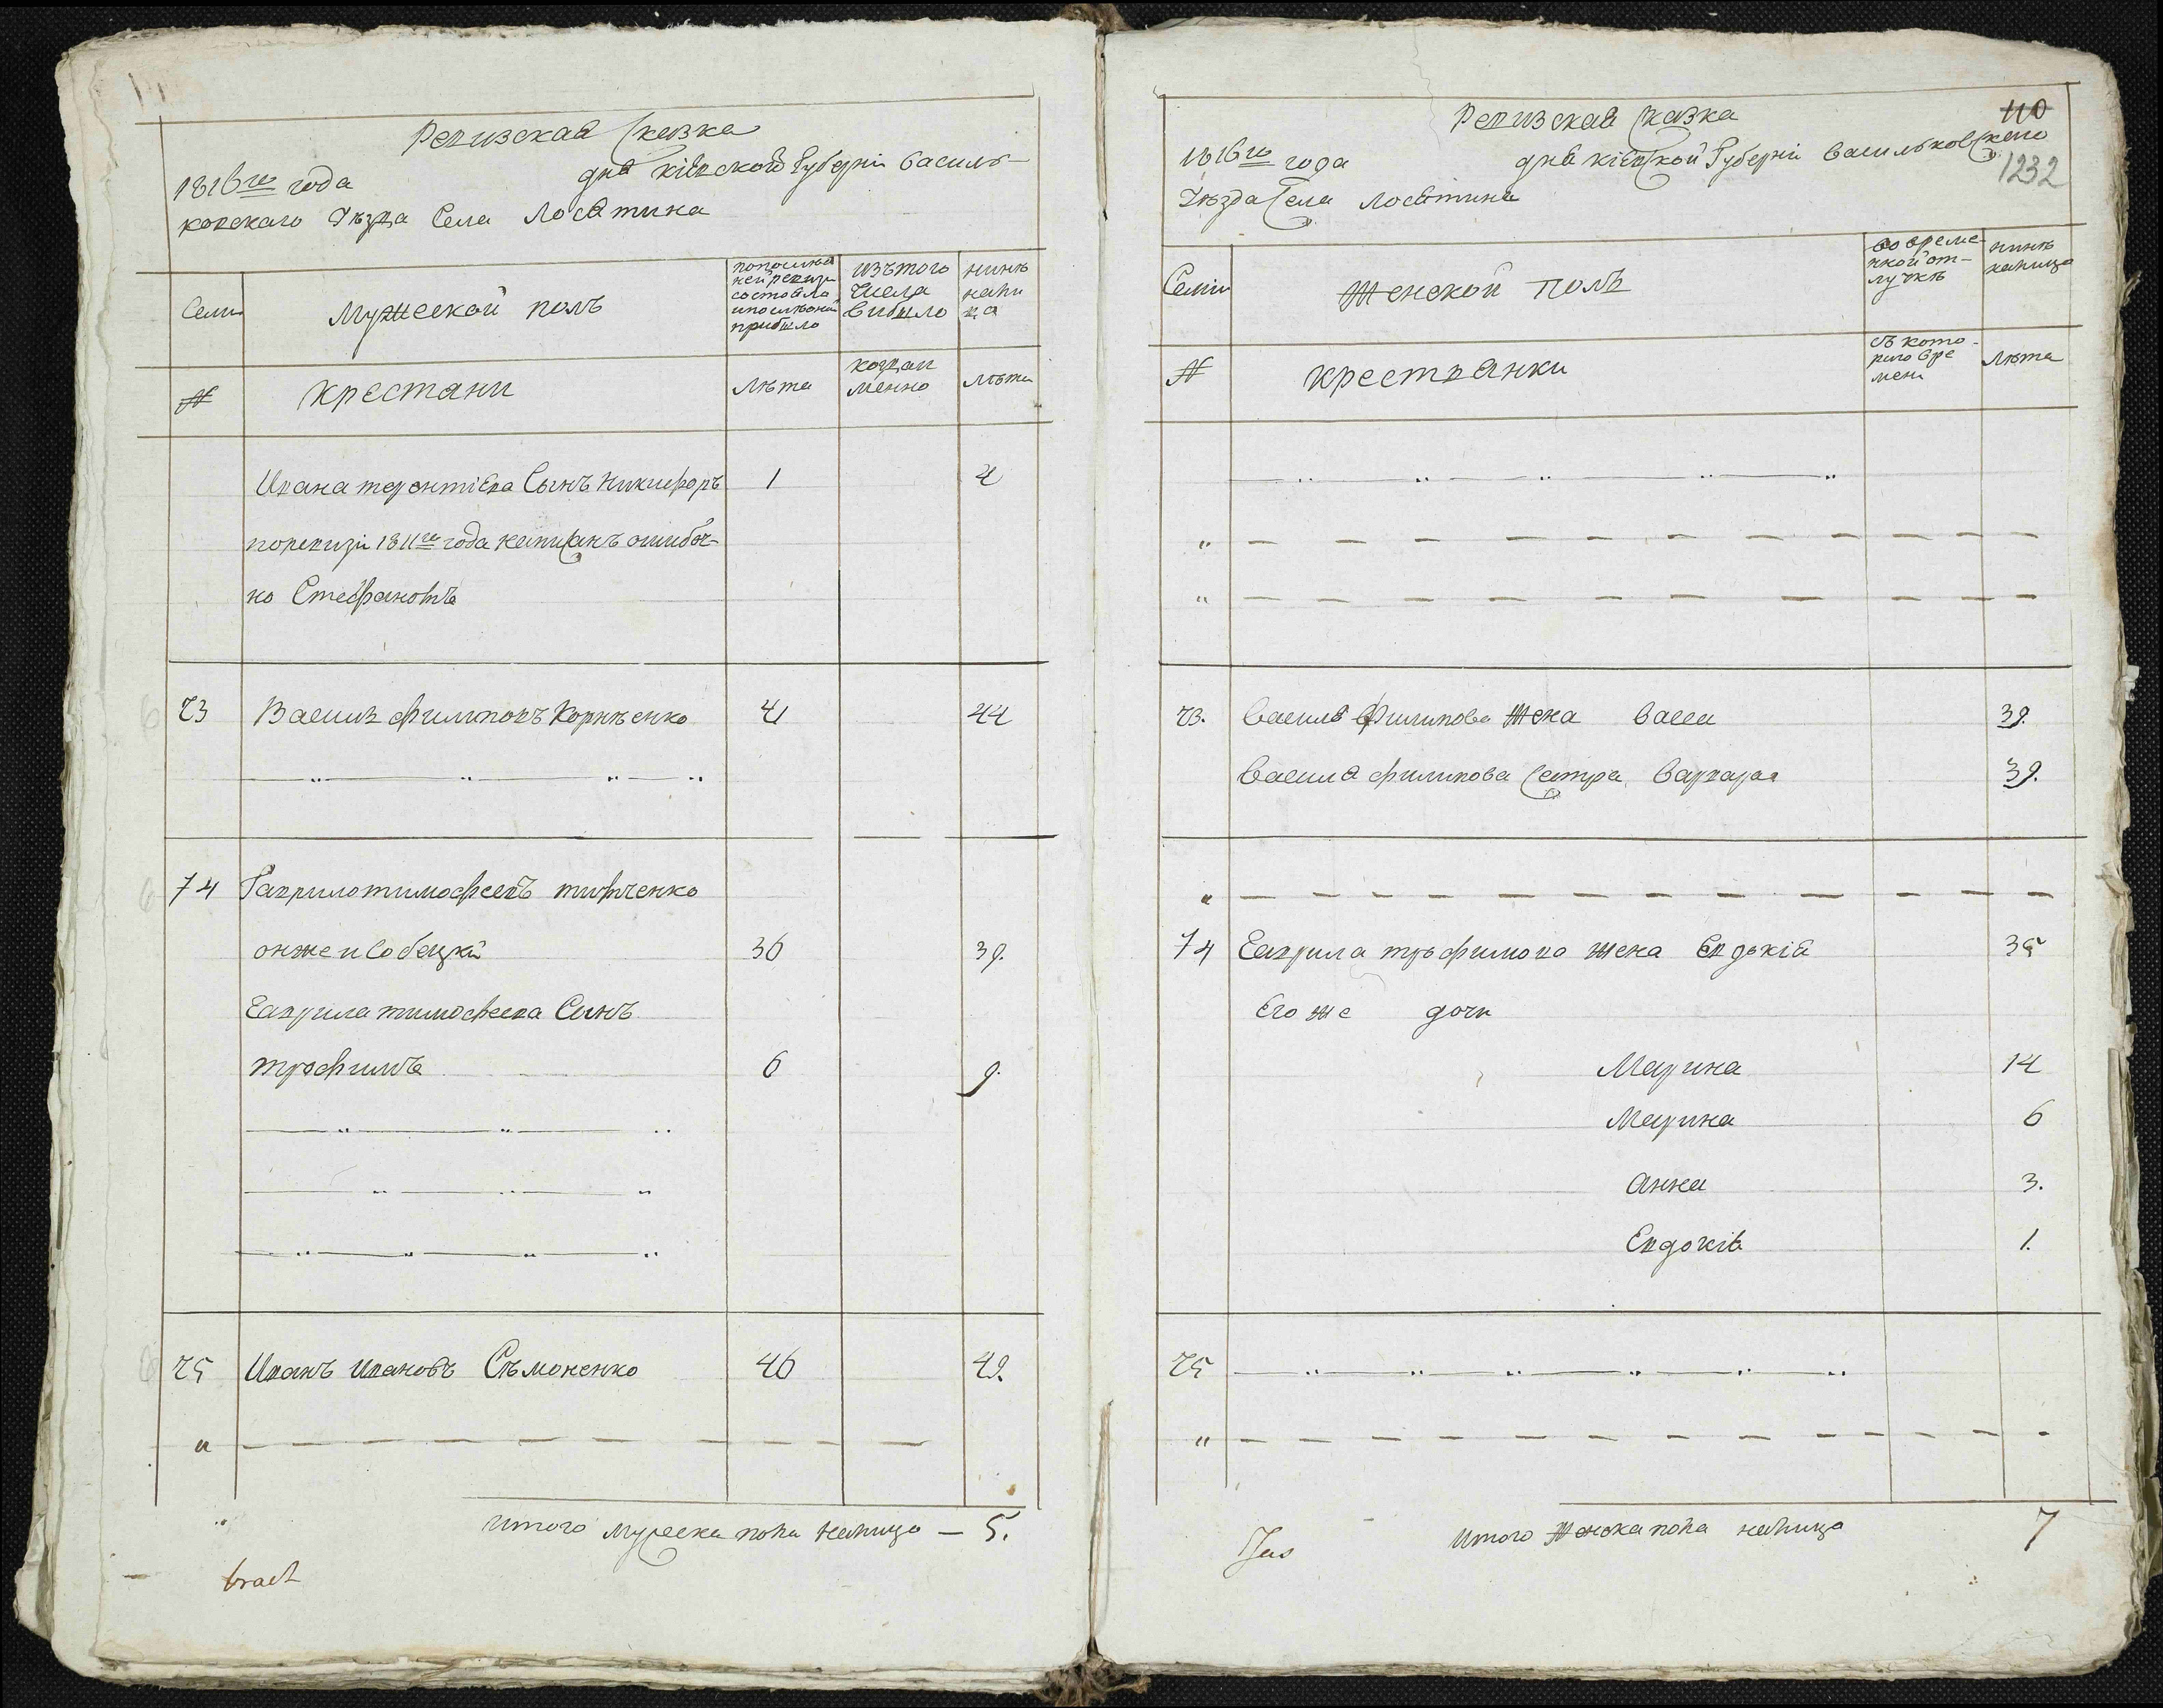 Ревизская Сказка
1816го года дня Кіевской Губерніи Василь-
ковскаго Уѣзда Села Лосятина
Семи
Мужеской полъ
попослед
ней ревизи
состояло
ипослѣоной
прибыло
изътого
числа
выбыло
нинѣ
нали
ца
№
Крестяни
лѣта
когдаи
менно
лѣта
Ивана терентіева Сынъ Никифоръ 1 4
поревизіи 1811го года написанъ ошибоч-
но Стефановъ
73 Василь филиповъ Корнѣенко 41 44
74 Гаврило тимофеевъ тифченко
онже и Собецкій 36 39.
Гаврила тимофеева Сынъ
трофимъ 6 9.
75 Иванъ Ивановъ Сѣмоненко 46 49.
"
итого мужеска пола налицо — 5.
brach
Ревизская Сказка
110
1816го года дня Кіевской Губерніи Васильковскаго
1232
Уѣзда Села Лосятина
Семии
Женской полъ
во време-
нной от-
лучкѣ
нинѣ
налицо
№
Крестьянки
съ кото-
раго вре
мени
лѣта
"
"
73. Василя Филипова Жена Васса 39.
Василя филипова Сестра Варвара 39.
"
74 Гаврила трофимова жена Евдокія 35
Его же дочи
Марина 14
Марина 6
Анна 3.
Евдокія 1.
75
"
Итого Женска пола налицо 7